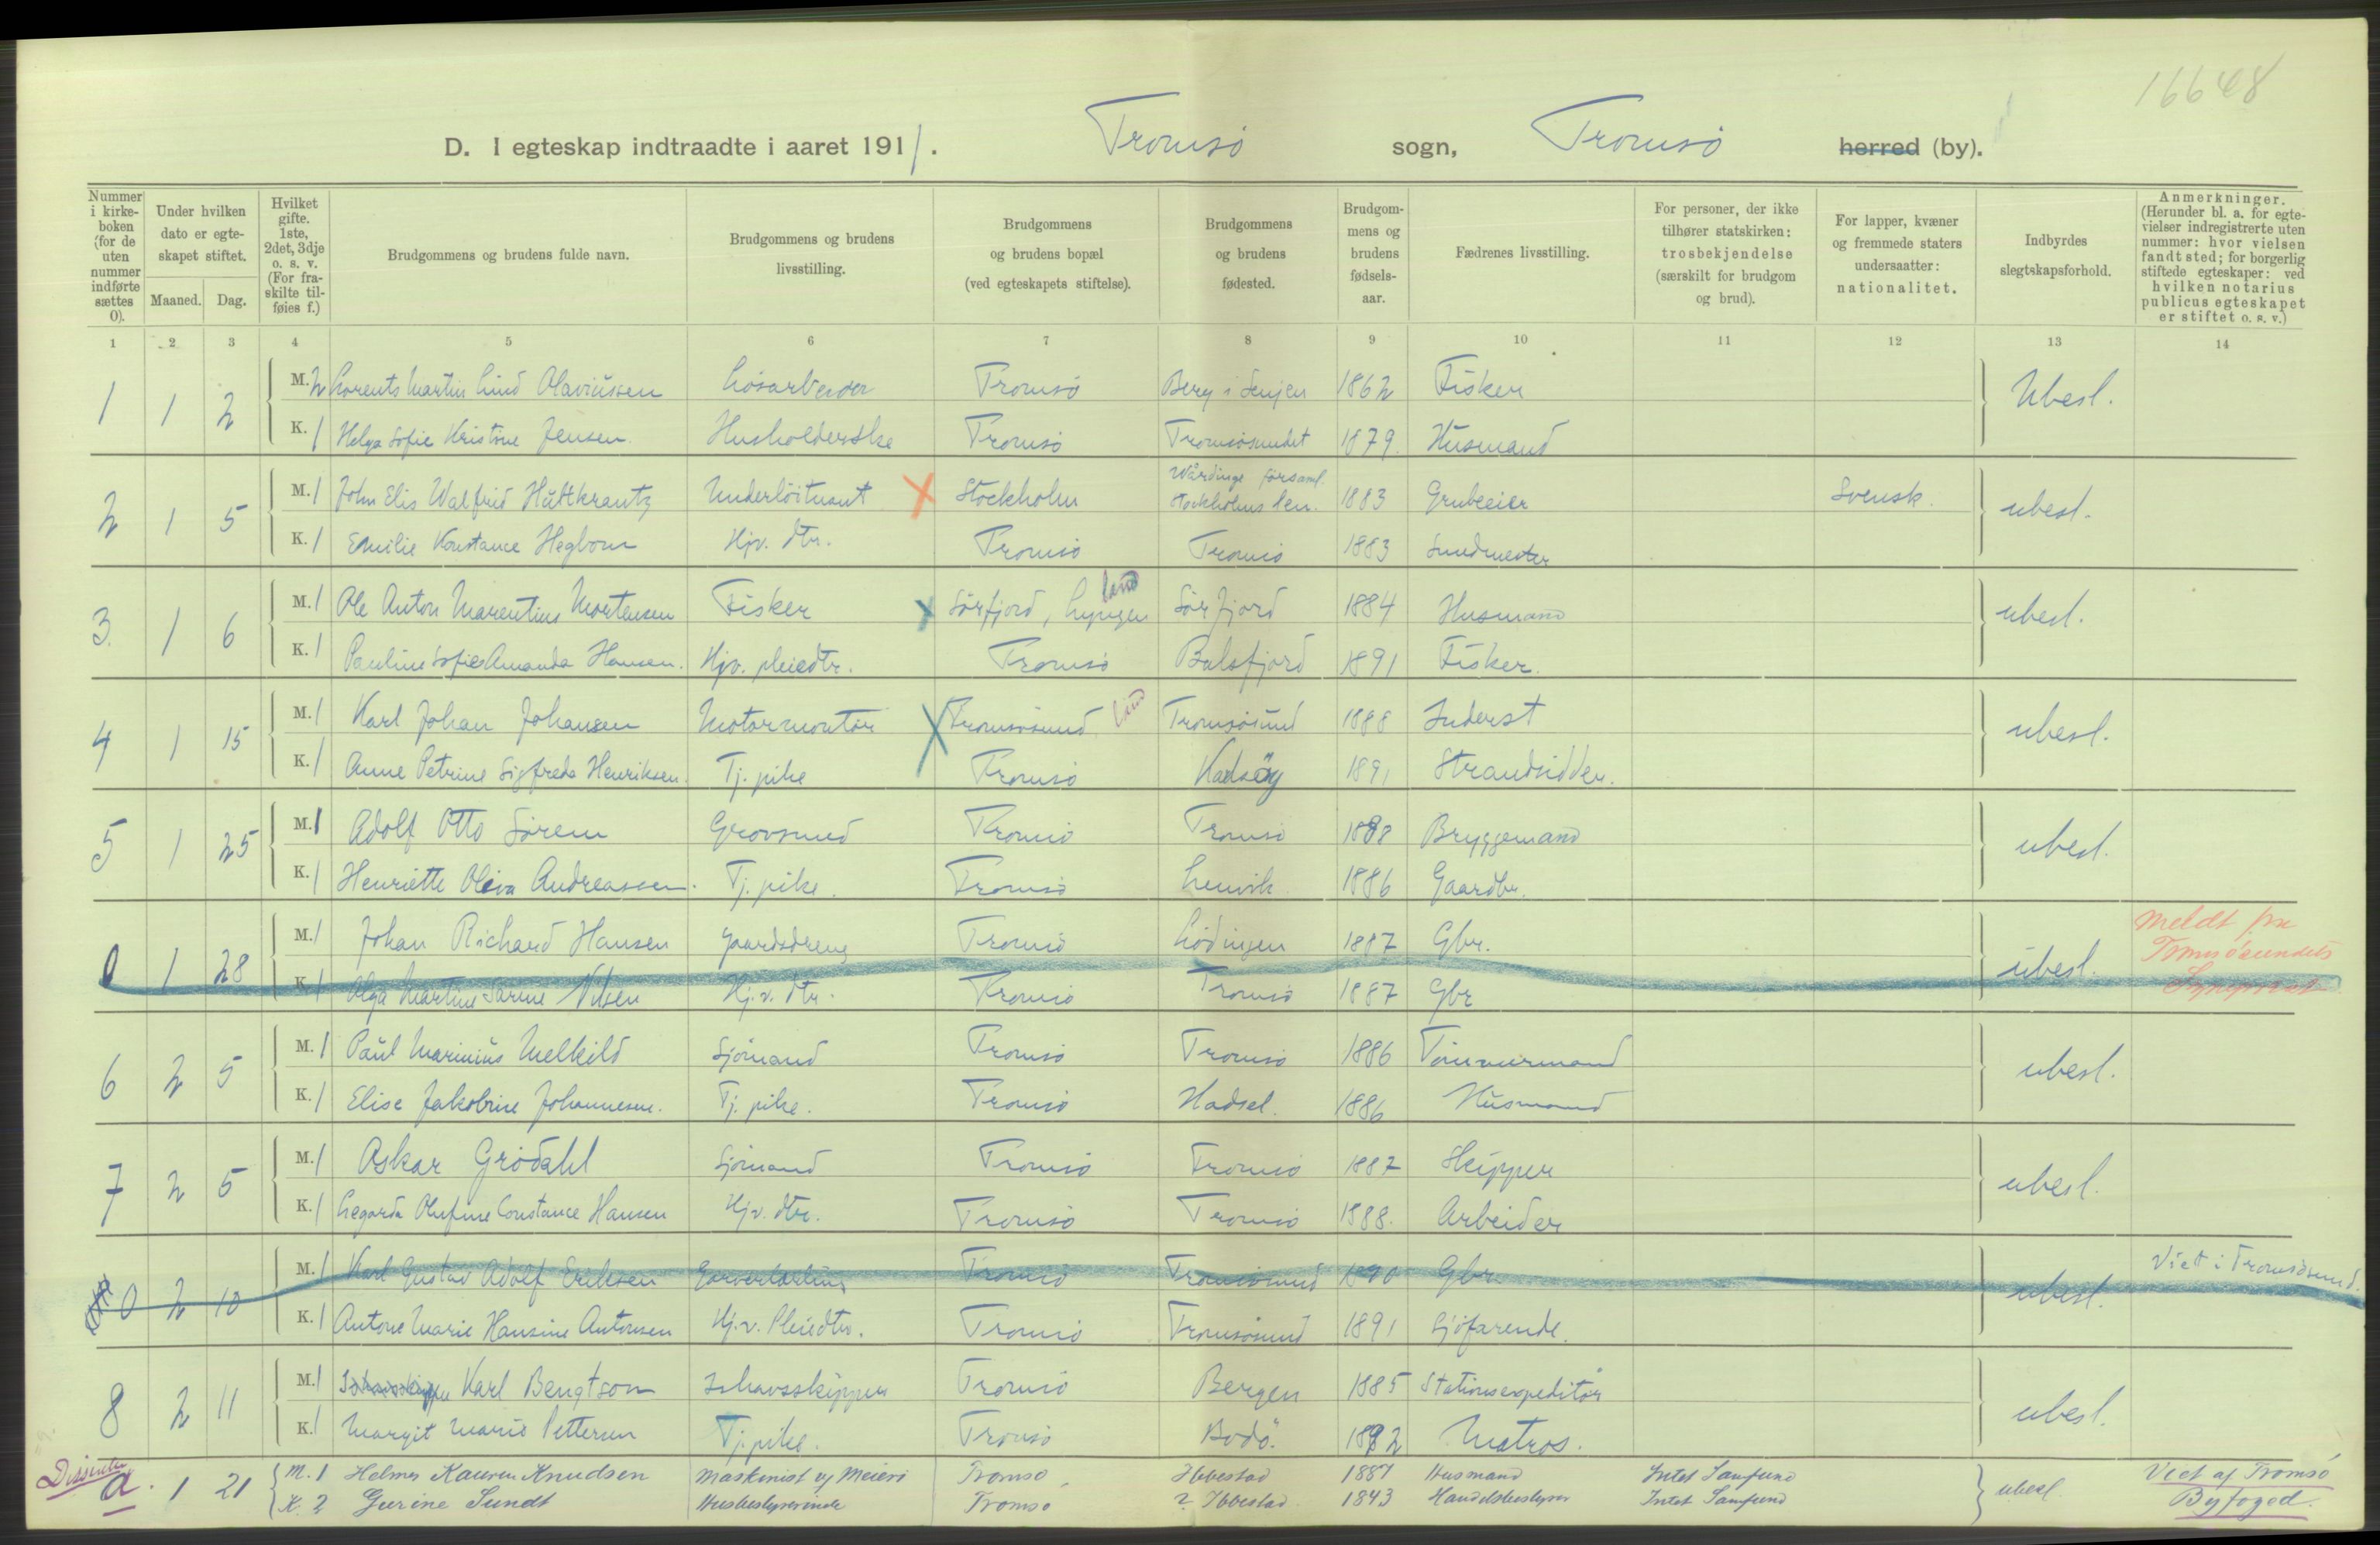 16648
D. I egteskap indtraadte i aaret 1911. Tromsö sogn, Tromsö herred (by).
Nummer i kirkeboken (for de uten nummer indførte sættes 0).
Under hvilken dato er egteskapet stiftet.
Maaned. Dag.
Hvilket gifte. 1ste, 2det, 3dje o. s. v. (For fraskilte tilføies f.)
Brudgommens og brudens fulde navn.
Brudgommens og brudens livsstilling.
Brudgommens og brudens bopæl (ved egteskapets stiftelse).
Brudgommens og brudens fødested.
Brudgommens og brudens fødselsaar.
Fædrenes livsstilling.
For personer, der ikke tilhører statskirken: trosbekjendelse (særskilt for brudgom og brud).
For lapper, kvæner og fremmede staters undersaatter: nationalitet.
Indbyrdes slegtskapsforhold.
Anmerkninger. (Herunder bl. a. for egtevielser indregistrerte uten nummer: hvor vielsen fandt sted; for borgerlig stiftede egteskaper: ved hvilken notarius publicus egteskapet er stiftet o. s. v.)
1 2 3 4 5 6 7 8 9 10 11 12 13 14
1 1 2 M. 2 Lorents Martin Lind Olaviussen Løsarbeider Tromsö Berg i Senjen 1862 Fisker Ubesl.
K. 1 Helga Sofie Kristine Jensen. Husholderske Tromsö Tromsösundet 1879. Husmand
2 1 5 M. 1 John Elis Walfrid Hultkrantz Underlöitnant X Stockholm Wårdinge församl. Stockholms len. 1883 Grubeeier Svensk. ubesl.
K. 1 Emilie Konstance Hegbom Hjv. dtr. Tromsö Tromsö 1883 Smedmester
3. 1 6 M. 1 Ole Anton Marentius Mortensen Fisker x Sörfjord, Lyngen land Sörfjord 1884 Husmand ubesl.
K. 1 Pauline Sofie Amanda Hansen. Hjv. pleiedtr. Tromsö Balsfjord 1891 Fisker.
4 1 15 M. 1 Karl Johan Johansen Motormontör X Tromsösund land Tromsösund 1888 Inderst ubesl.
K. 1 Anne Petrine Sigfreda Henriksen. Tj. pike Tromsö 1891 Strandsidder.
5 1 25 M. 1 Adolf Otto Sörem Grovsmed Tromsö Tromsö 1888 Bryggemand ubesl.
K. 1 Henriette Oliva Andreassen. Tj. pike. Tromsö Lenvik 1886 Gaardbr.
0 1 28 M. 1 Johan Richard Hansen Gaardsdreng Tromsö Lödingen 1887 Gbr. ubesl. Meldt fra Tromsösundets
K. 1 Olga Martine Sarine Nilsen Hj.v. dtr. Tromsö Tromsö 1887 Gbr
6 2 5 M. 1 Paul Marinius Melkild Sjömand Tromsö Tromsö 1886 Tömmermand ubesl.
K. 1 Elise Jakobine Johannesen. Tj. pike. Tromsö Hadsel. 1886 Husmand
7 2 5 M. 1 Oskar Grödahl Sjömand Tromsö Tromsö 1887 Skipper ubesl.
K. 1 Legarda Olufine Constance Hansen Hjv. dtr. Tromsö Tromsö 1888. Arbeider
0 2 10 M. 1 Karl Gustav Adolf Eriksen Garverlærling Tromsö Tromsösund 1890 Gbr. ubesl. Viet i Tromsösund.
K. 1 Antone Marie Hansine Antonsen Hj.v. Pleiedtr. Tromsö Tromsösund 1891 Sjöfarende.
8 2 11 M. 1 Karl Bengtson Ishavsskipper Tromsö Bergen 1885 Stationsexpeditör ubesl.
K. 1 Margit Marie Pettersen Tj. pike. Tromsö Bodö. 1892 Matros.
Dissenter
a. 1 21 M. 1 Helmer Kauren Knudsen Maskinist v/ Meieri Tromsö Ibbestad 1887 Husmand Intet Samfund ubesl. Viet af Tromsö
K. 2 Gurine Sundt Husbestyrerinde Tromsö ? Ibbestad 1843 Handelsbestyrer Intet Samfund Byfoged.